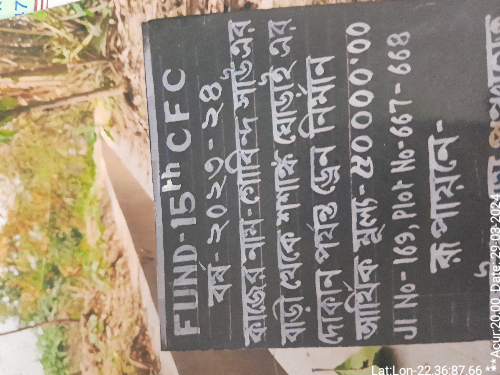 FUND-15th CFC
বর্ষ-২০২৩-২৪
কাজের নাম-গোবিন্দ সাউ এর
বাড়ী থেকে শশাঙ্ক ঘোড়াই এর
দোকান পর্যন্ত ড্রেন নির্মান
আর্থিক মূল্য- ৫0000.00
Jl No-169, Plot No-667-668
রূপায়নে-
Lat:Lon-22.36:87.66
***Acur20.00, Date:29-03-2024